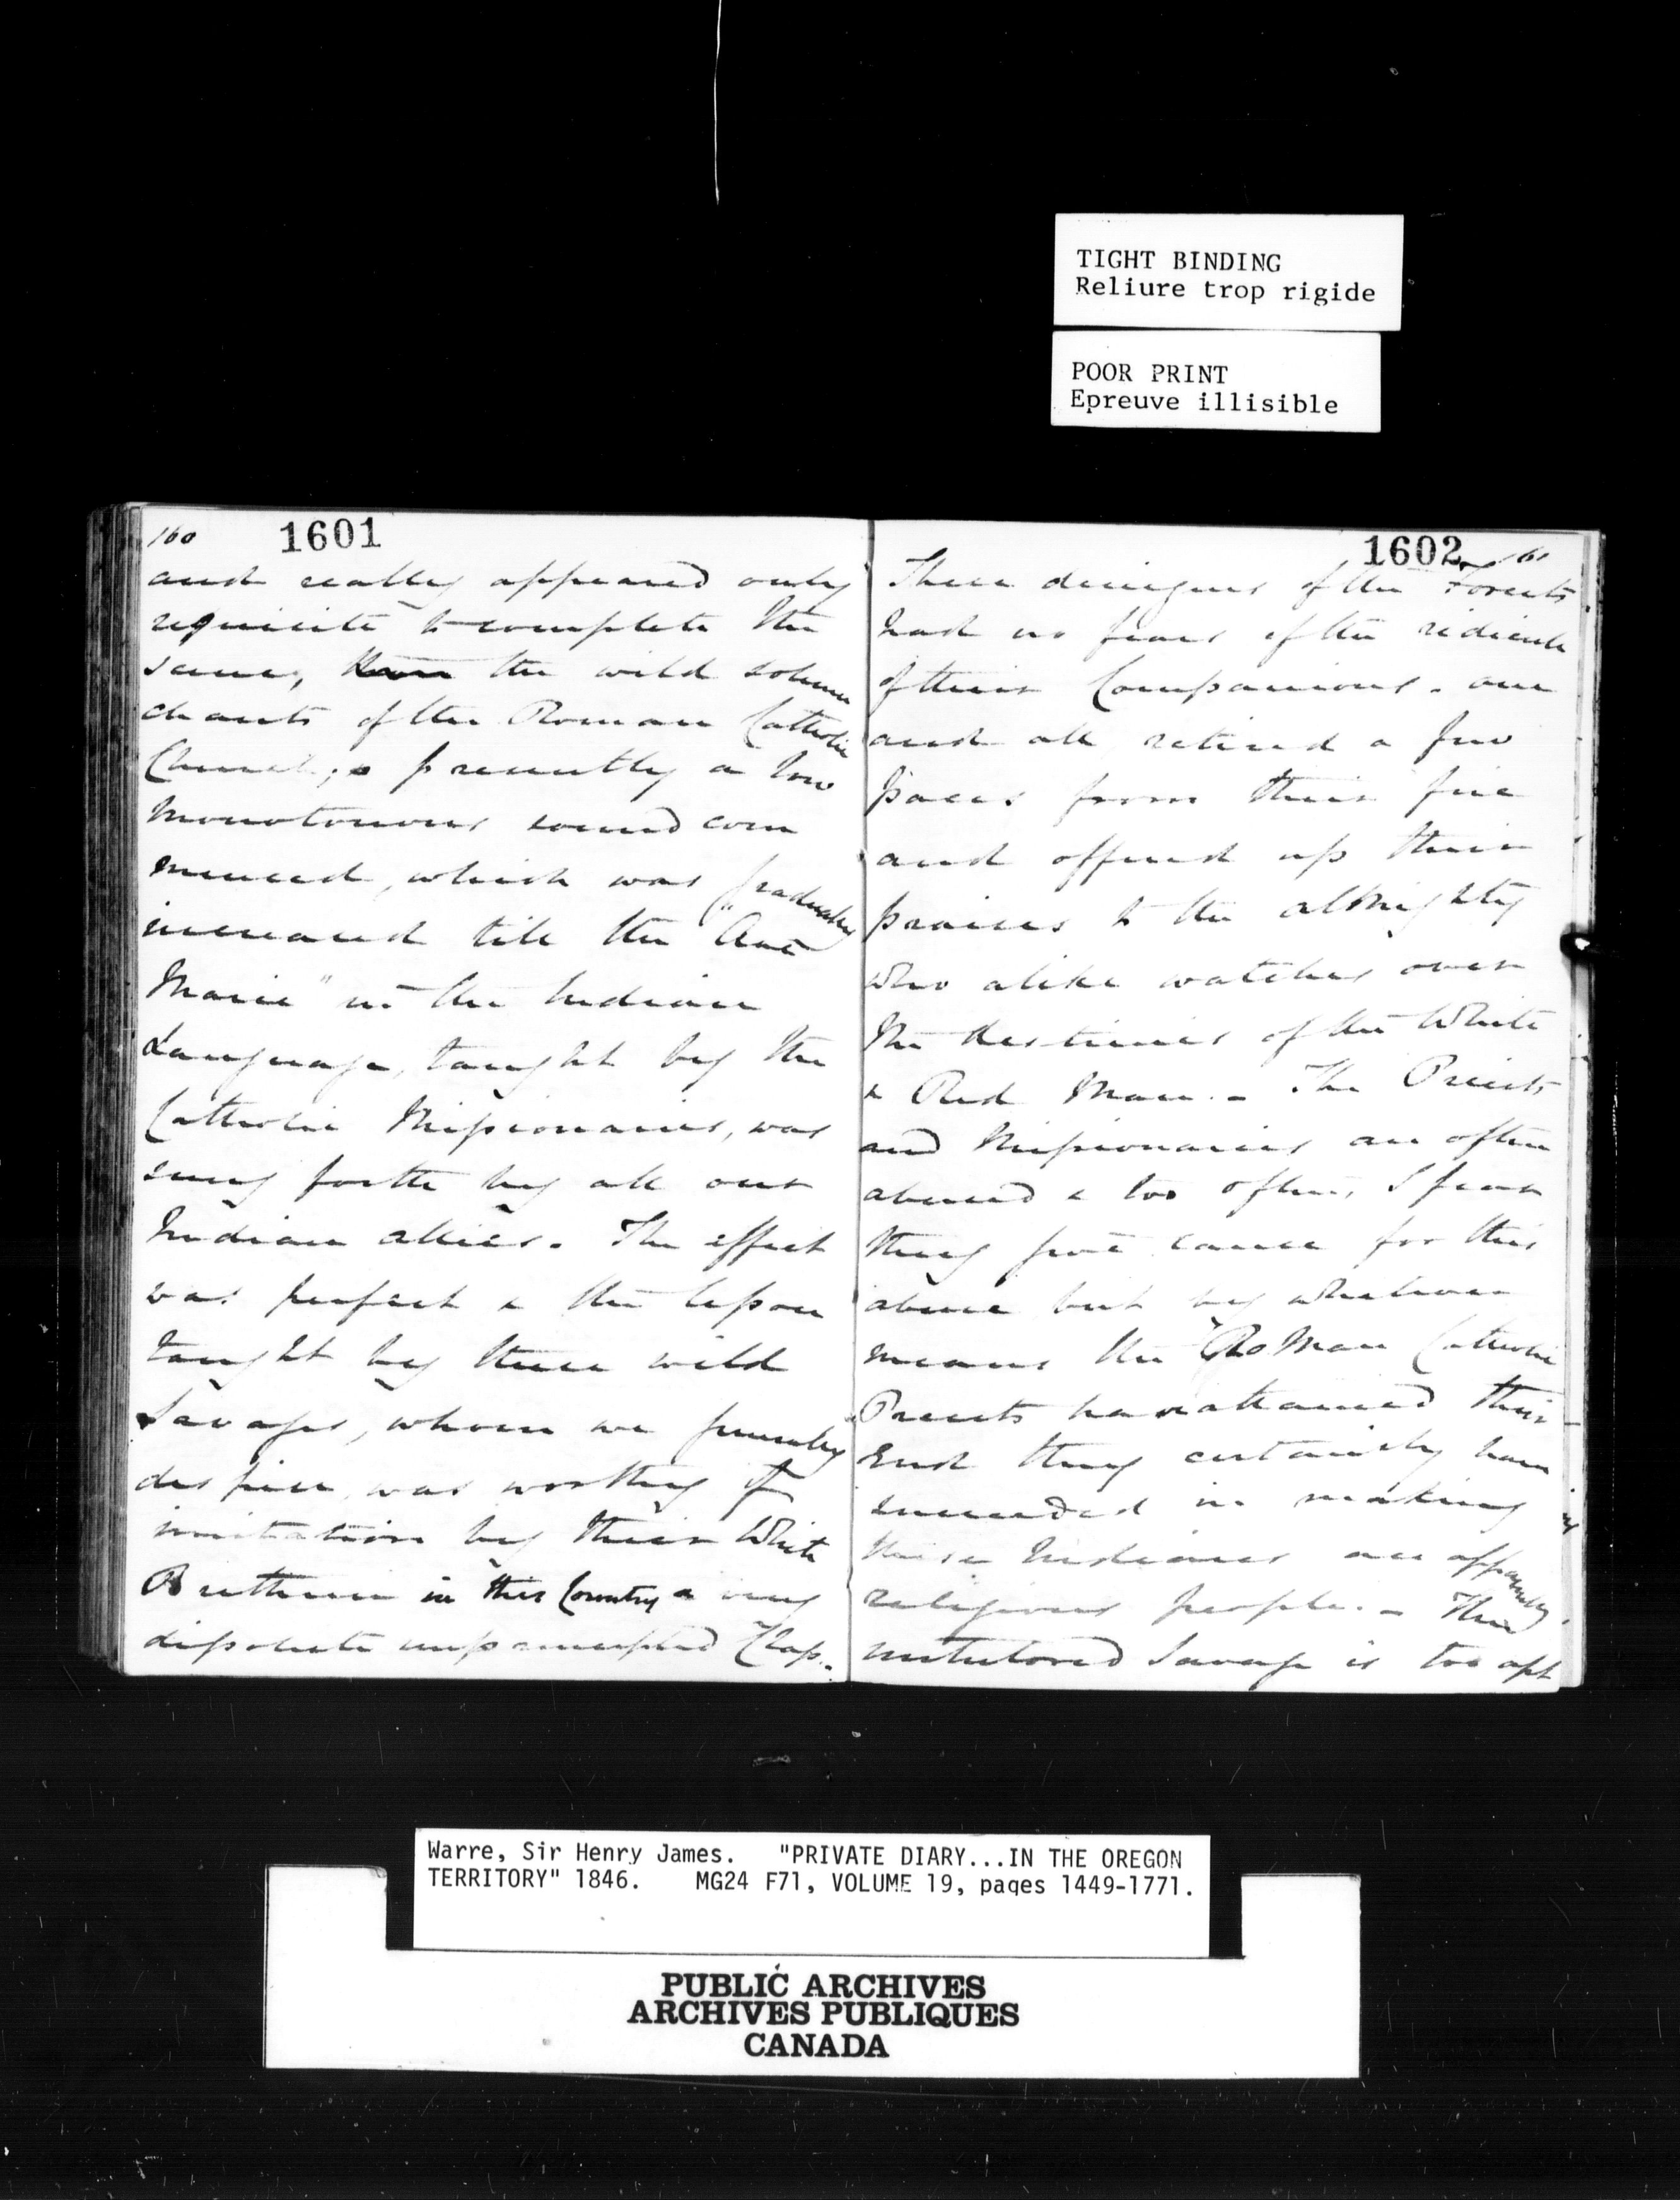 TIGHT BINDING
Reliure trop rigide
POOR PRINT
Epreuve illisible
160 1601
and really appeared only
requisite to complete the
scene, the wild solemn
chants of the Roman Catholic
Church; & presently a low
monotonous sound com
menced, which was gradually
increased till the "Ave
Maria" in the Indian
Language, taught by the
Catholic Missionaries, was
sung forth by all our
Indian allies. The effect
was perfect & the lesson
taught by these wild
Savages, whom we
despise, was worthy of
imitation by their White
Brethren in this Country a very
dissolute Class.
1602 161
These denizens of the Forests
had no fears of the ridicule
of their Companions. one
and all retired a few
paces from their fire
and offered up their
praises to the almighty
who alike watches over
the destinies of the White
& Red Man. - The Priests
and Missionaries are often
abused & too often, I fear
they give cause for this
abuse but by whatever
means the Roman Catholic
Preests have attained their
End they certainly have
succeeded in making
these Indians an apparently
religious people. - The
untutored Savage is too apt
Warre, Sir Henry James. "PRIVATE DIARY...IN THE OREGON
TERRITORY" 1846. MG24 F71, VOLUME 19, pages 1449-1771.
PUBLIC ARCHIVES
ARCHIVES PUBLIQUES
CANADA